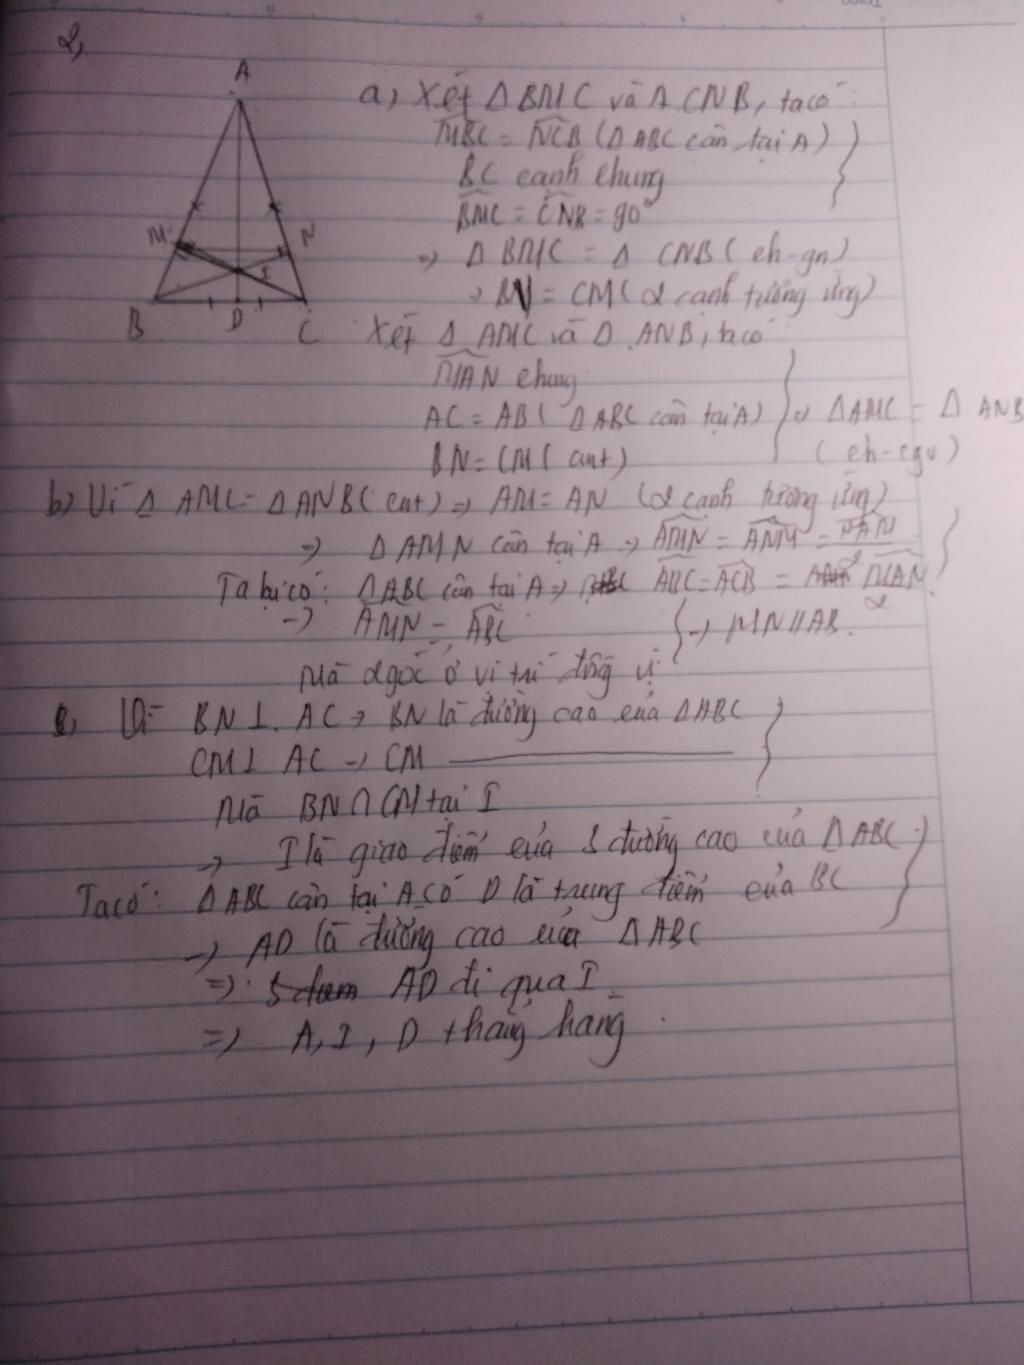 2,
A
M
N
I
B
D
C
a, Xét Δ BMC và Δ CNB, ta có:
MBC = NCB (Δ ABC cân tại A)
BC cạnh chung
BMC = CNB = 90°
=> Δ BMC = Δ CNB (ch-gn)
=> BN = CM (2 cạnh tương ứng)
Xét Δ AMC và Δ ANB, ta có
MAN chung
AC = AB (Δ ABC cân tại A) => Δ AMC = Δ ANB
BN = CM (cmt) (ch-cgv)
b) Vì Δ AMC = Δ ANB (cmt) => AM = AN (2 cạnh tương ứng)
=> Δ AMN cân tại A => AMN = ANM = MAN / 2
Ta lại có: Δ ABC cân tại A => ABC = ACB = MAN / 2
=> AMN = ABC
=> MN // AB.
Mà 2 góc ở vị trí đồng vị
c, Vì BN ⊥ AC => BN là đường cao của Δ ABC
CM ⊥ AC => CM ————
Mà BN ∩ CM tại I
=> I là giao điểm của 3 đường cao của Δ ABC.
Ta có: Δ ABC cân tại A có D là trung điểm của BC
=> AD là đường cao của Δ ABC
=> AD đi qua I
=> A, I, D thẳng hàng.